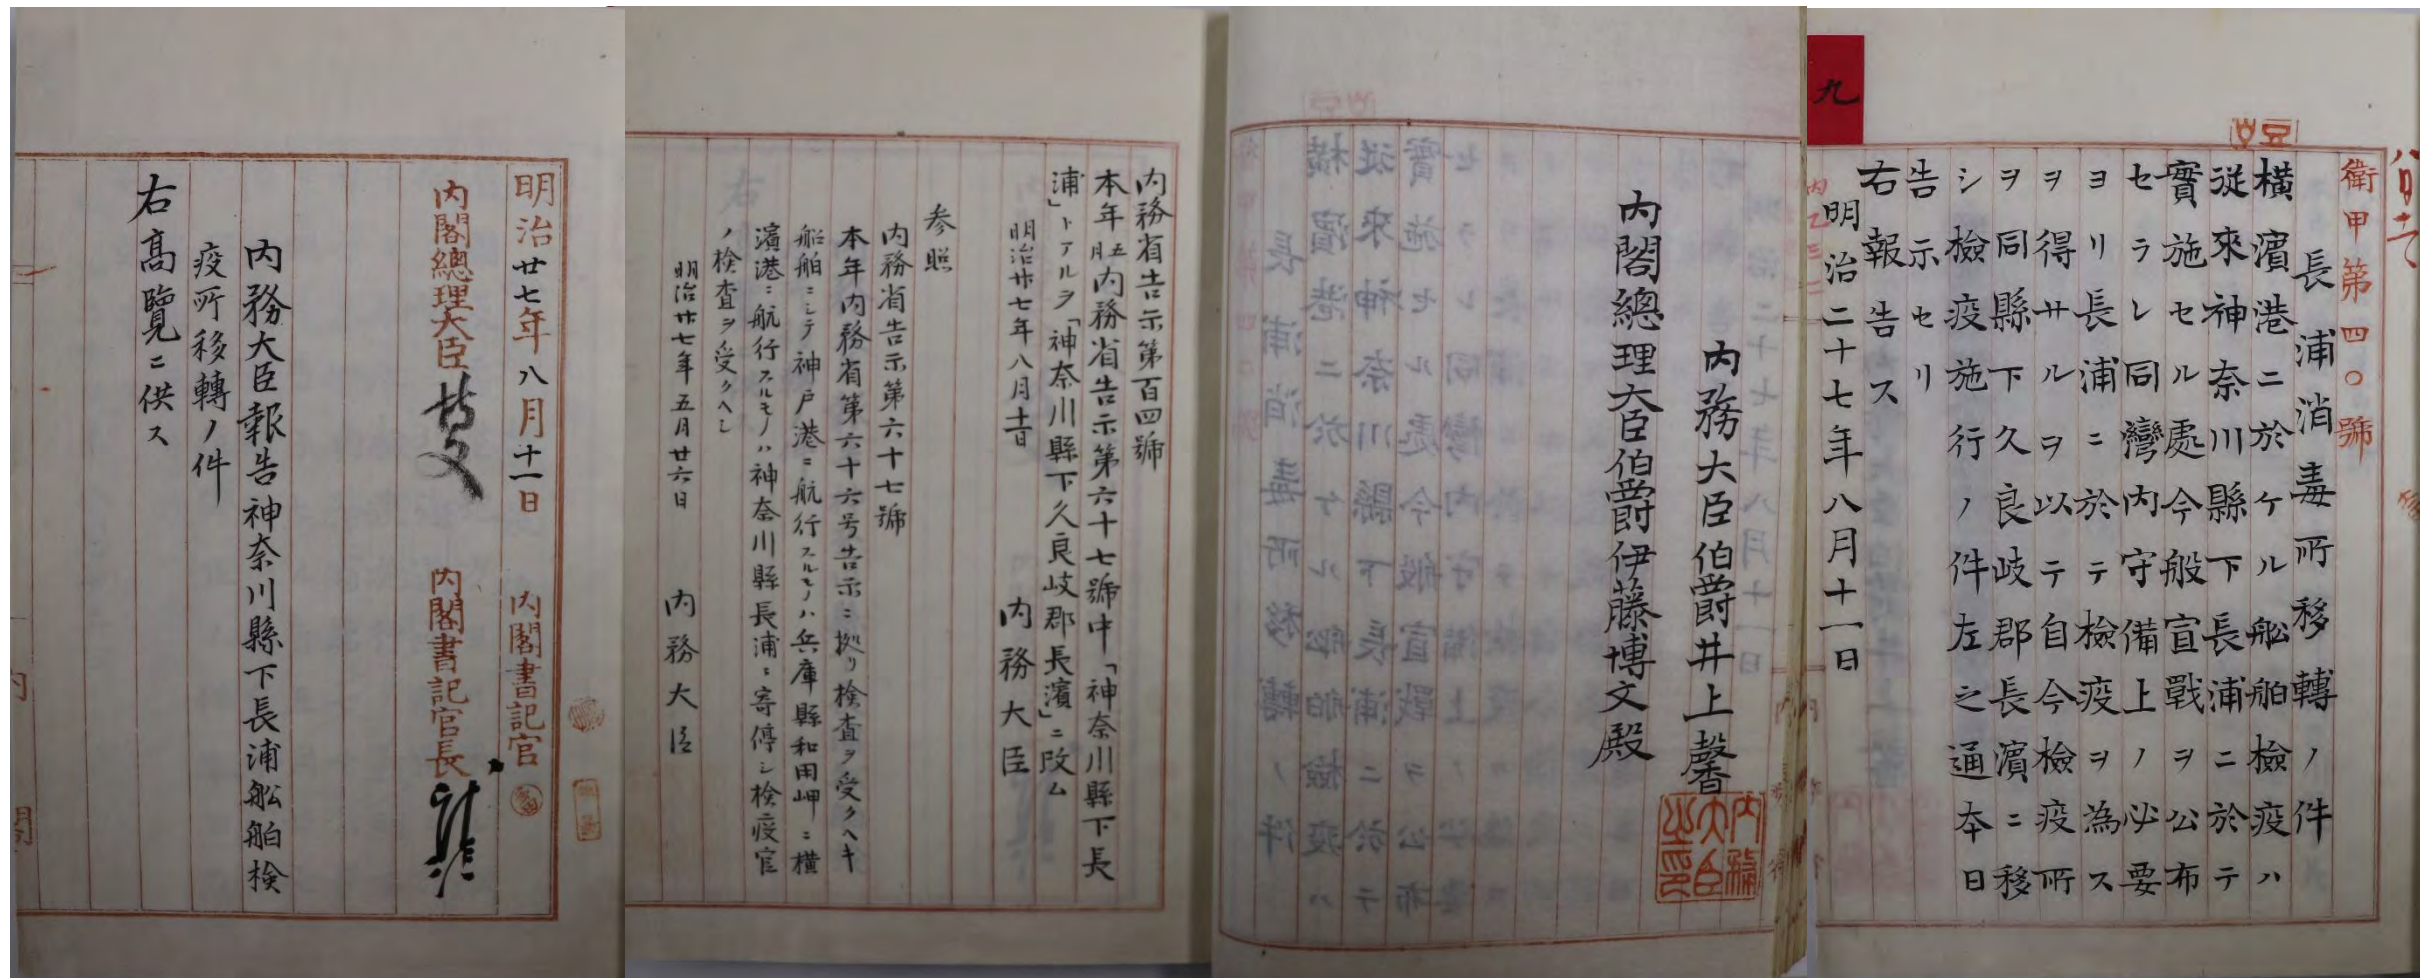 衛甲第四〇號
長浦消毒所移轉ノ件
橫濱港ニ於ケル船舶檢疫ハ
從來神奈川縣下長浦ニ於テ
實施セル處今般宣戰ヲ公布
セラレ同灣内守備上ノ必要
ヨリ長浦ニ於テ檢疫ヲ為ス
ヲ得サルヲ以テ自今檢疫所
ヲ同縣下久良岐郡長濱ニ移
シ檢疫施行ノ件左之通本日
告示セリ
右報告ス
明治二十七年八月十一日
九
内務大臣伯爵井上馨
内務大臣之印
内閣總理大臣伯爵伊藤博文殿
内務省告示第百四號
本年五月内務省告示第六十七號中「神奈川縣下長
浦」トアルヲ「神奈川縣下久良岐郡長濱」ニ改ム
明治廿七年八月十一日 内務大臣
参照
内務省告示第六十七號
本年内務省第六十六号告示ニ拠リ検査ヲ受クヘキ
船舶ニシテ神戸港ニ航行スルモノハ兵庫縣和田岬ニ橫
濱港ニ航行スルモノハ神奈川縣長浦ニ寄停シ検疫官
ノ検査ヲ受クヘシ
明治廿七年五月廿六日 内務大臣
明治廿七年八月十一日 内閣書記官
内閣總理大臣 内閣書記官長
内務大臣報告神奈川縣下長浦船舶検
疫所移轉ノ件
右高覽ニ供ス